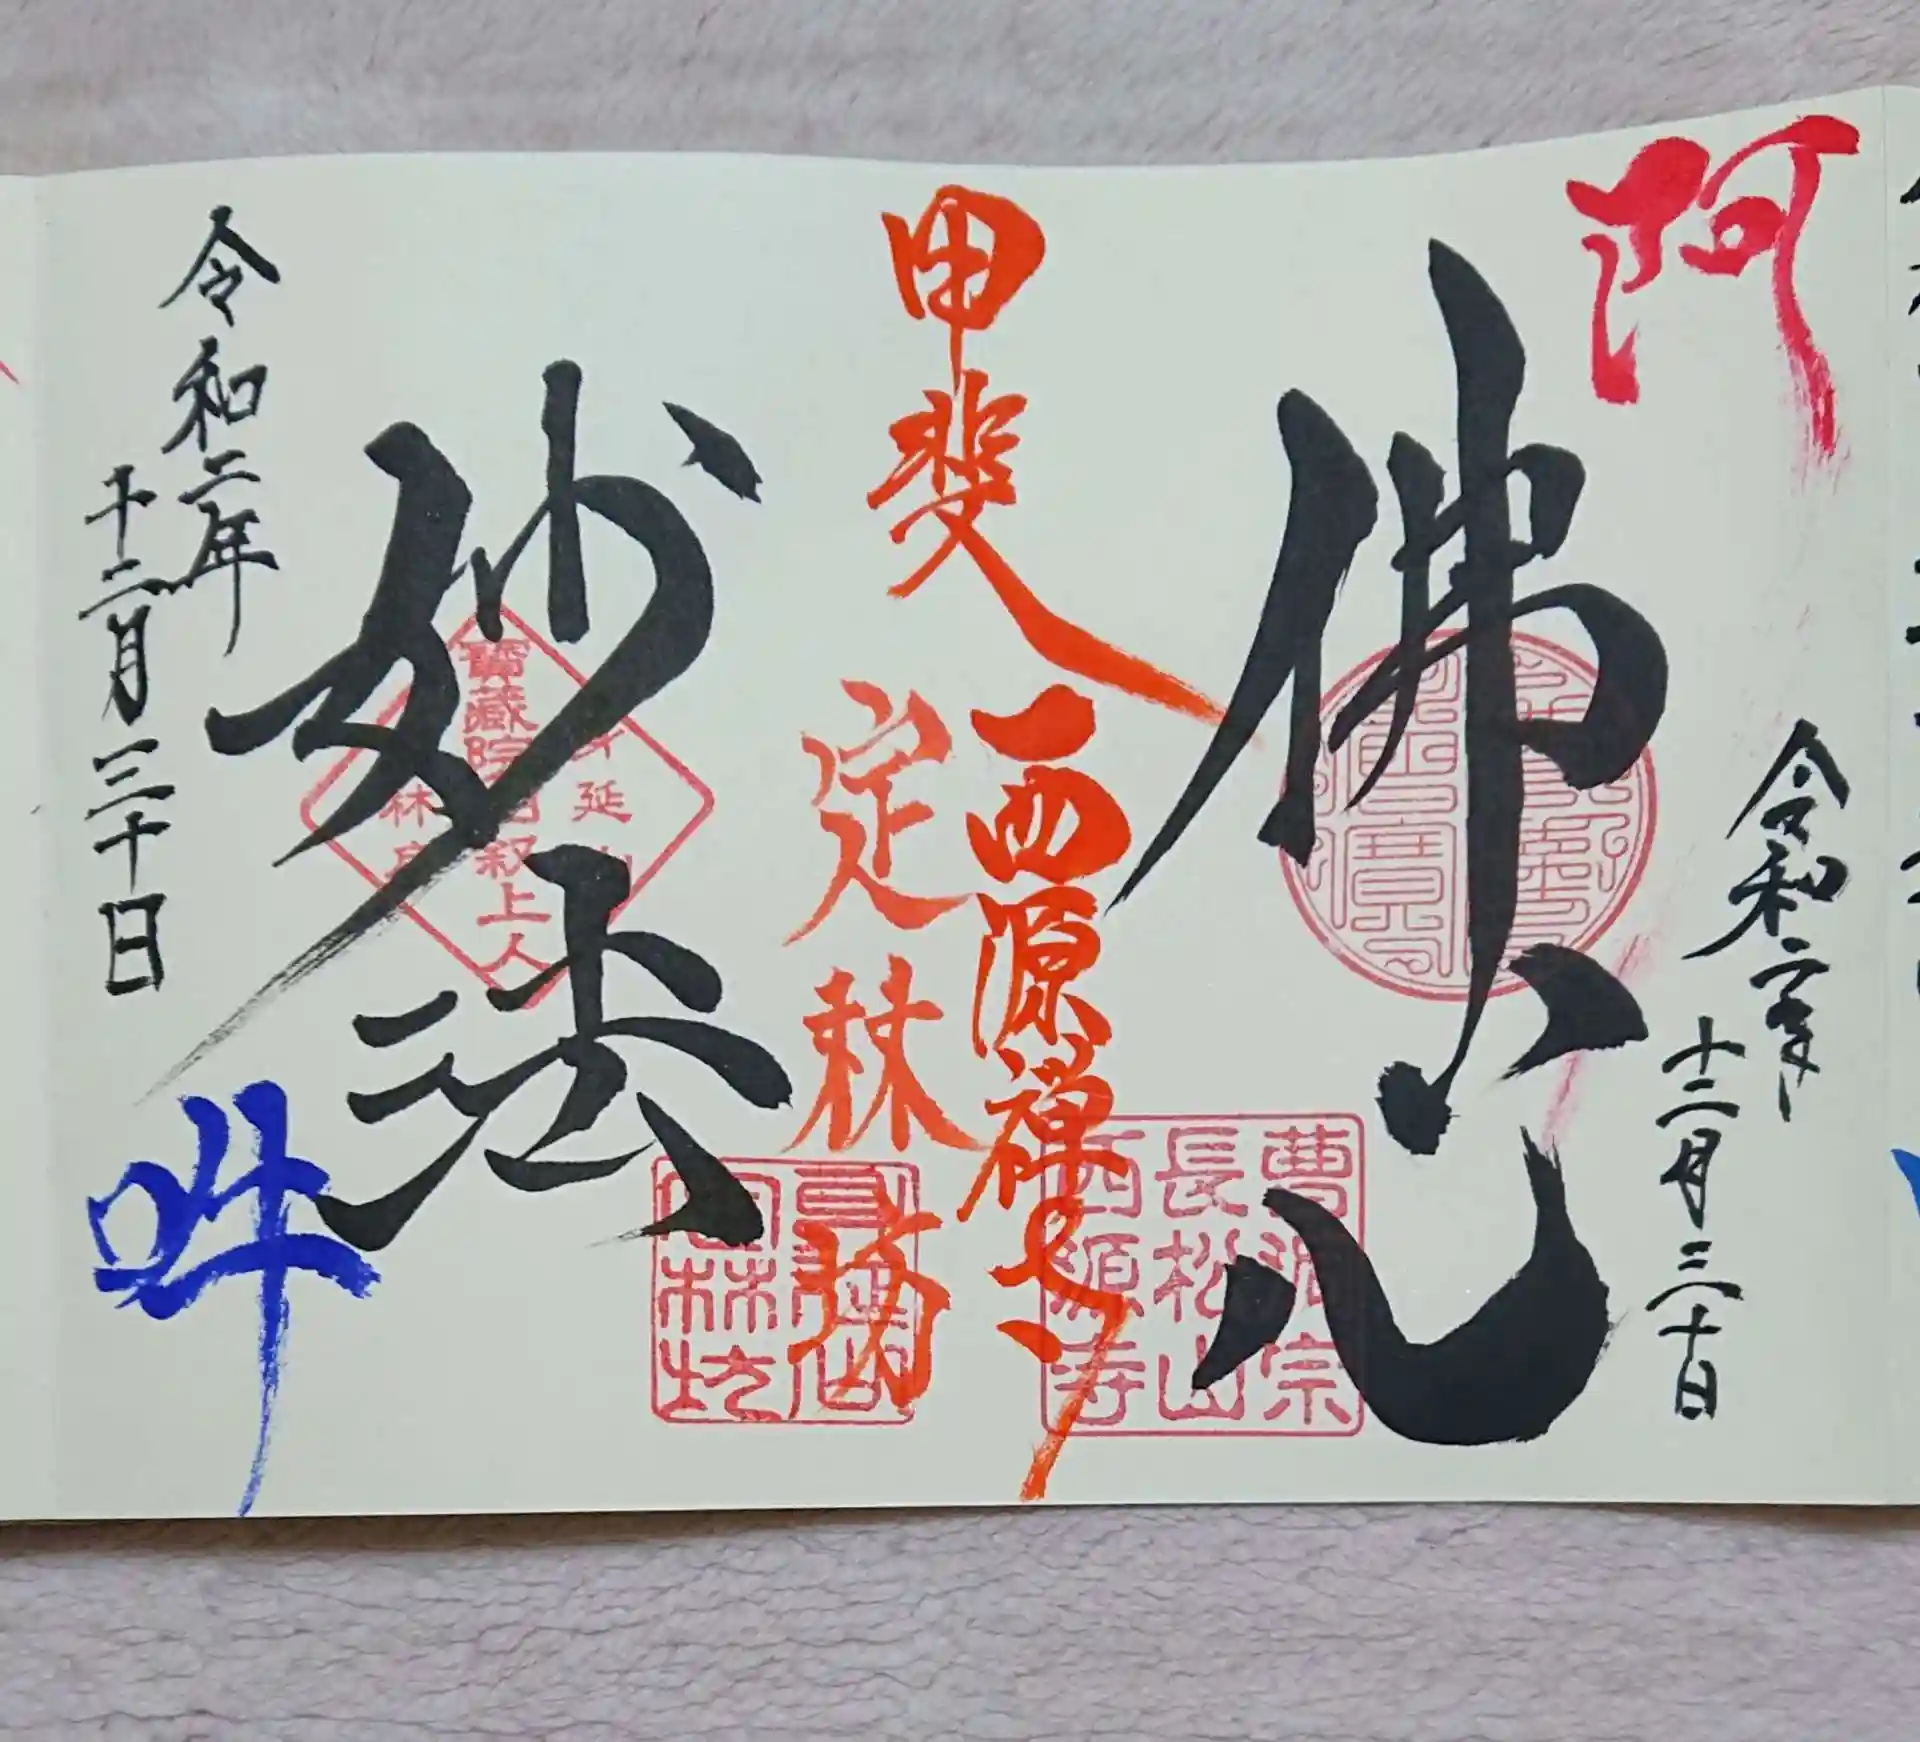 阿
佛心
令和二年
十二月三十日
甲斐
西源禅寺
曹洞宗
長松山
西源寺
定林坊
定林坊
妙法
寶蔵院日叙上人
身延山
令和二年
十二月三十日
吽